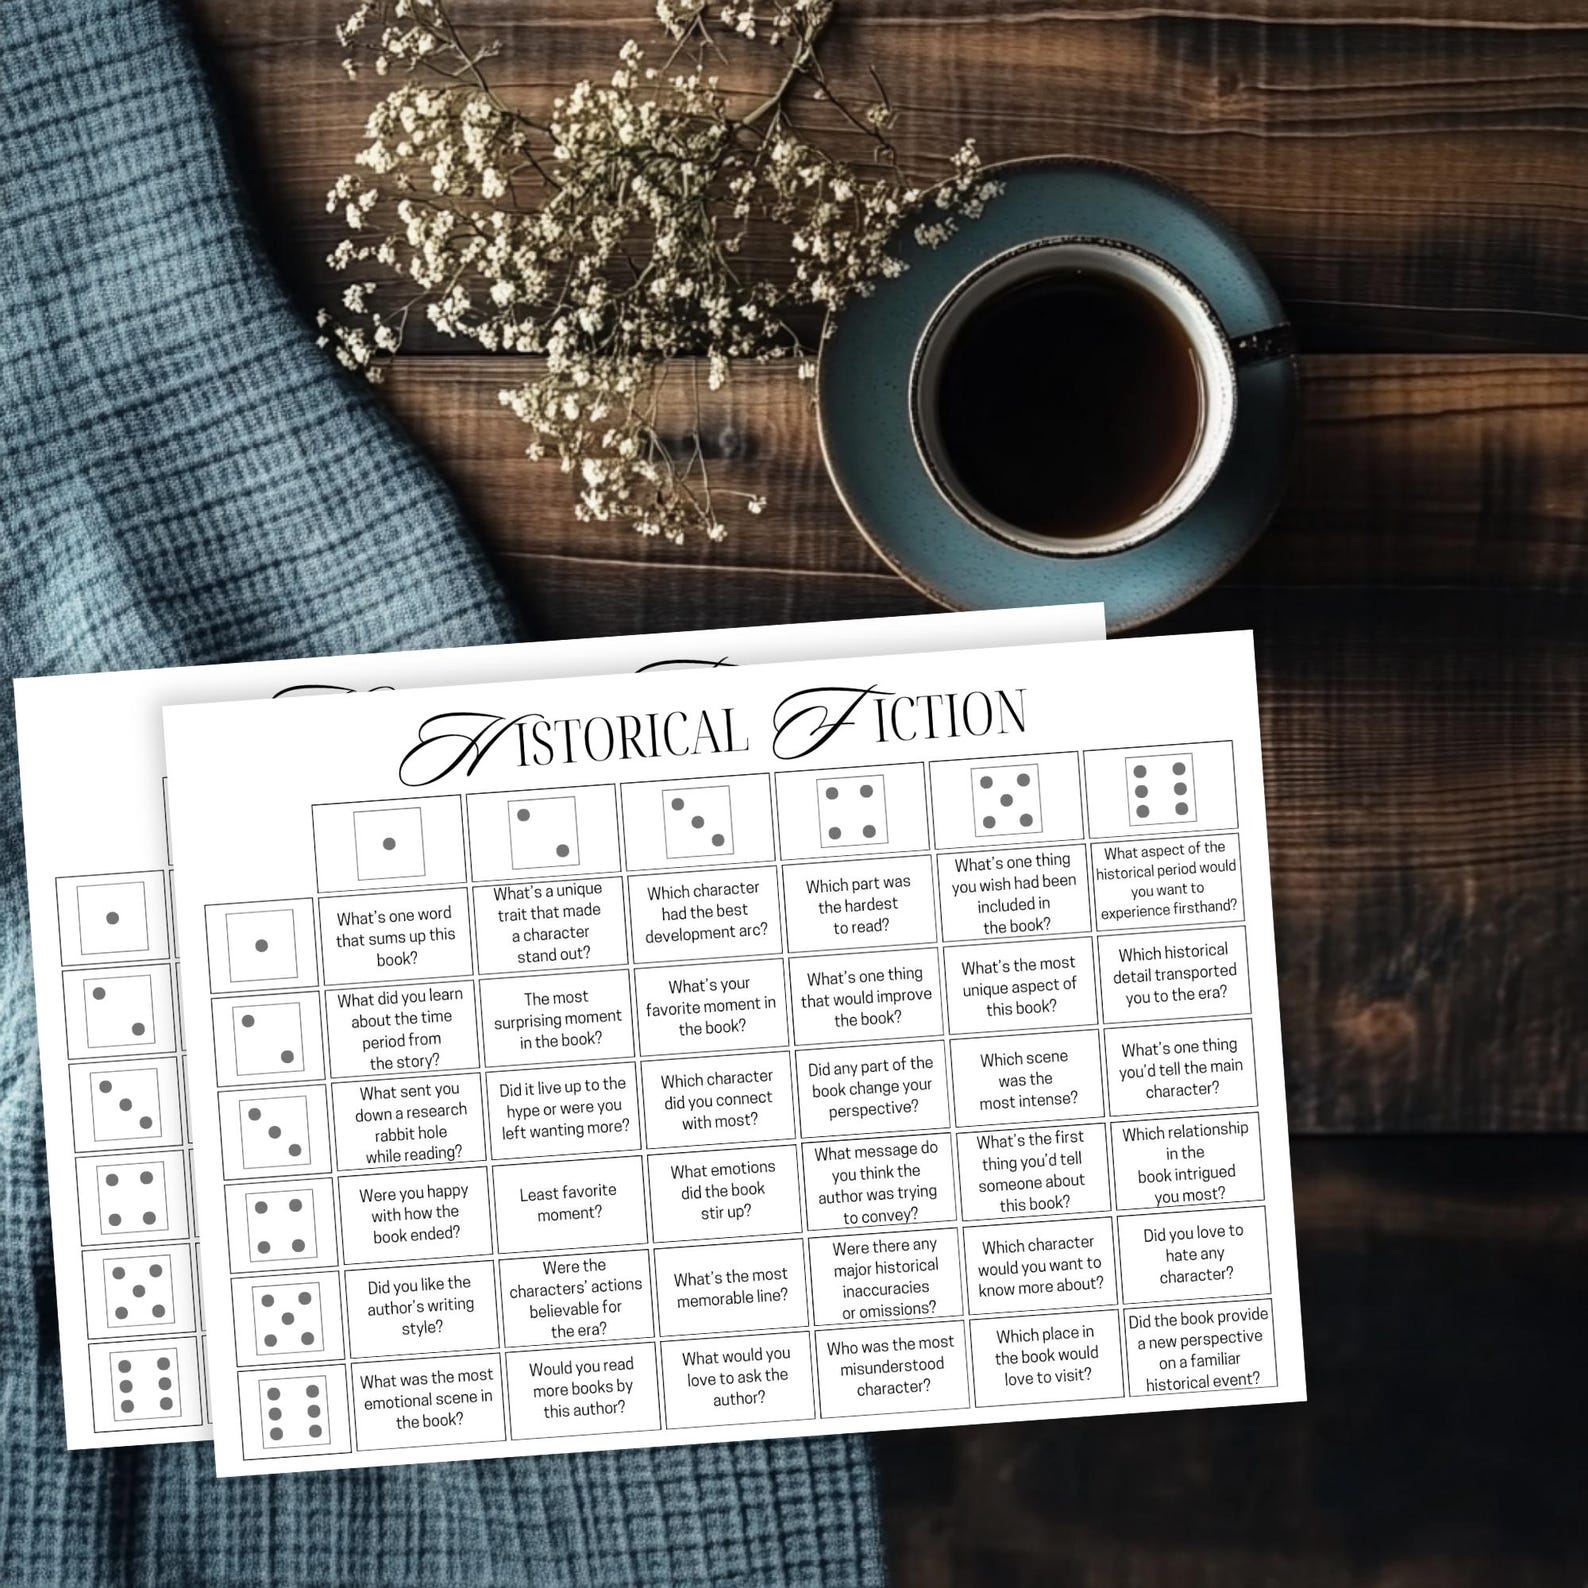 HISTORICAL FICTION
What's one word
that sums up this
book?
What's a unique
trait that made
a character
stand out?
Which character
had the best
development arc?
Which part was
the hardest
to read?
What's one thing
you wish had been
included in
the book?
What aspect of the
historical period would
you want to
experience firsthand?
What did you learn
about the time
period from
the story?
The most
surprising moment
in the book?
What's your
favorite moment in
the book?
What's one thing
that would improve
the book?
What's the most
unique aspect of
this book?
Which historical
detail transported
you to the era?
What sent you
down a research
rabbit hole
while reading?
Did it live up to the
hype or were you
left wanting more?
Which character
did you connect
with most?
Did any part of the
book change your
perspective?
Which scene
was the
most intense?
What's one thing
you'd tell the main
character?
Were you happy
with how the
book ended?
Least favorite
moment?
What emotions
did the book
stir up?
What message do
you think the
author was trying
to convey?
What's the first
thing you'd tell
someone about
this book?
Which relationship
in the
book intrigued
you most?
Did you like the
author's writing
style?
Were the
characters' actions
believable for
the era?
What's the most
memorable line?
Were there any
major historical
inaccuracies
or omissions?
Which character
would you want to
know more about?
Did you love to
hate any
character?
What was the most
emotional scene in
the book?
Would you read
more books by
this author?
What would you
love to ask the
author?
Who was the most
misunderstood
character?
Which place in
the book would
love to visit?
Did the book provide
a new perspective
on a familiar
historical event?